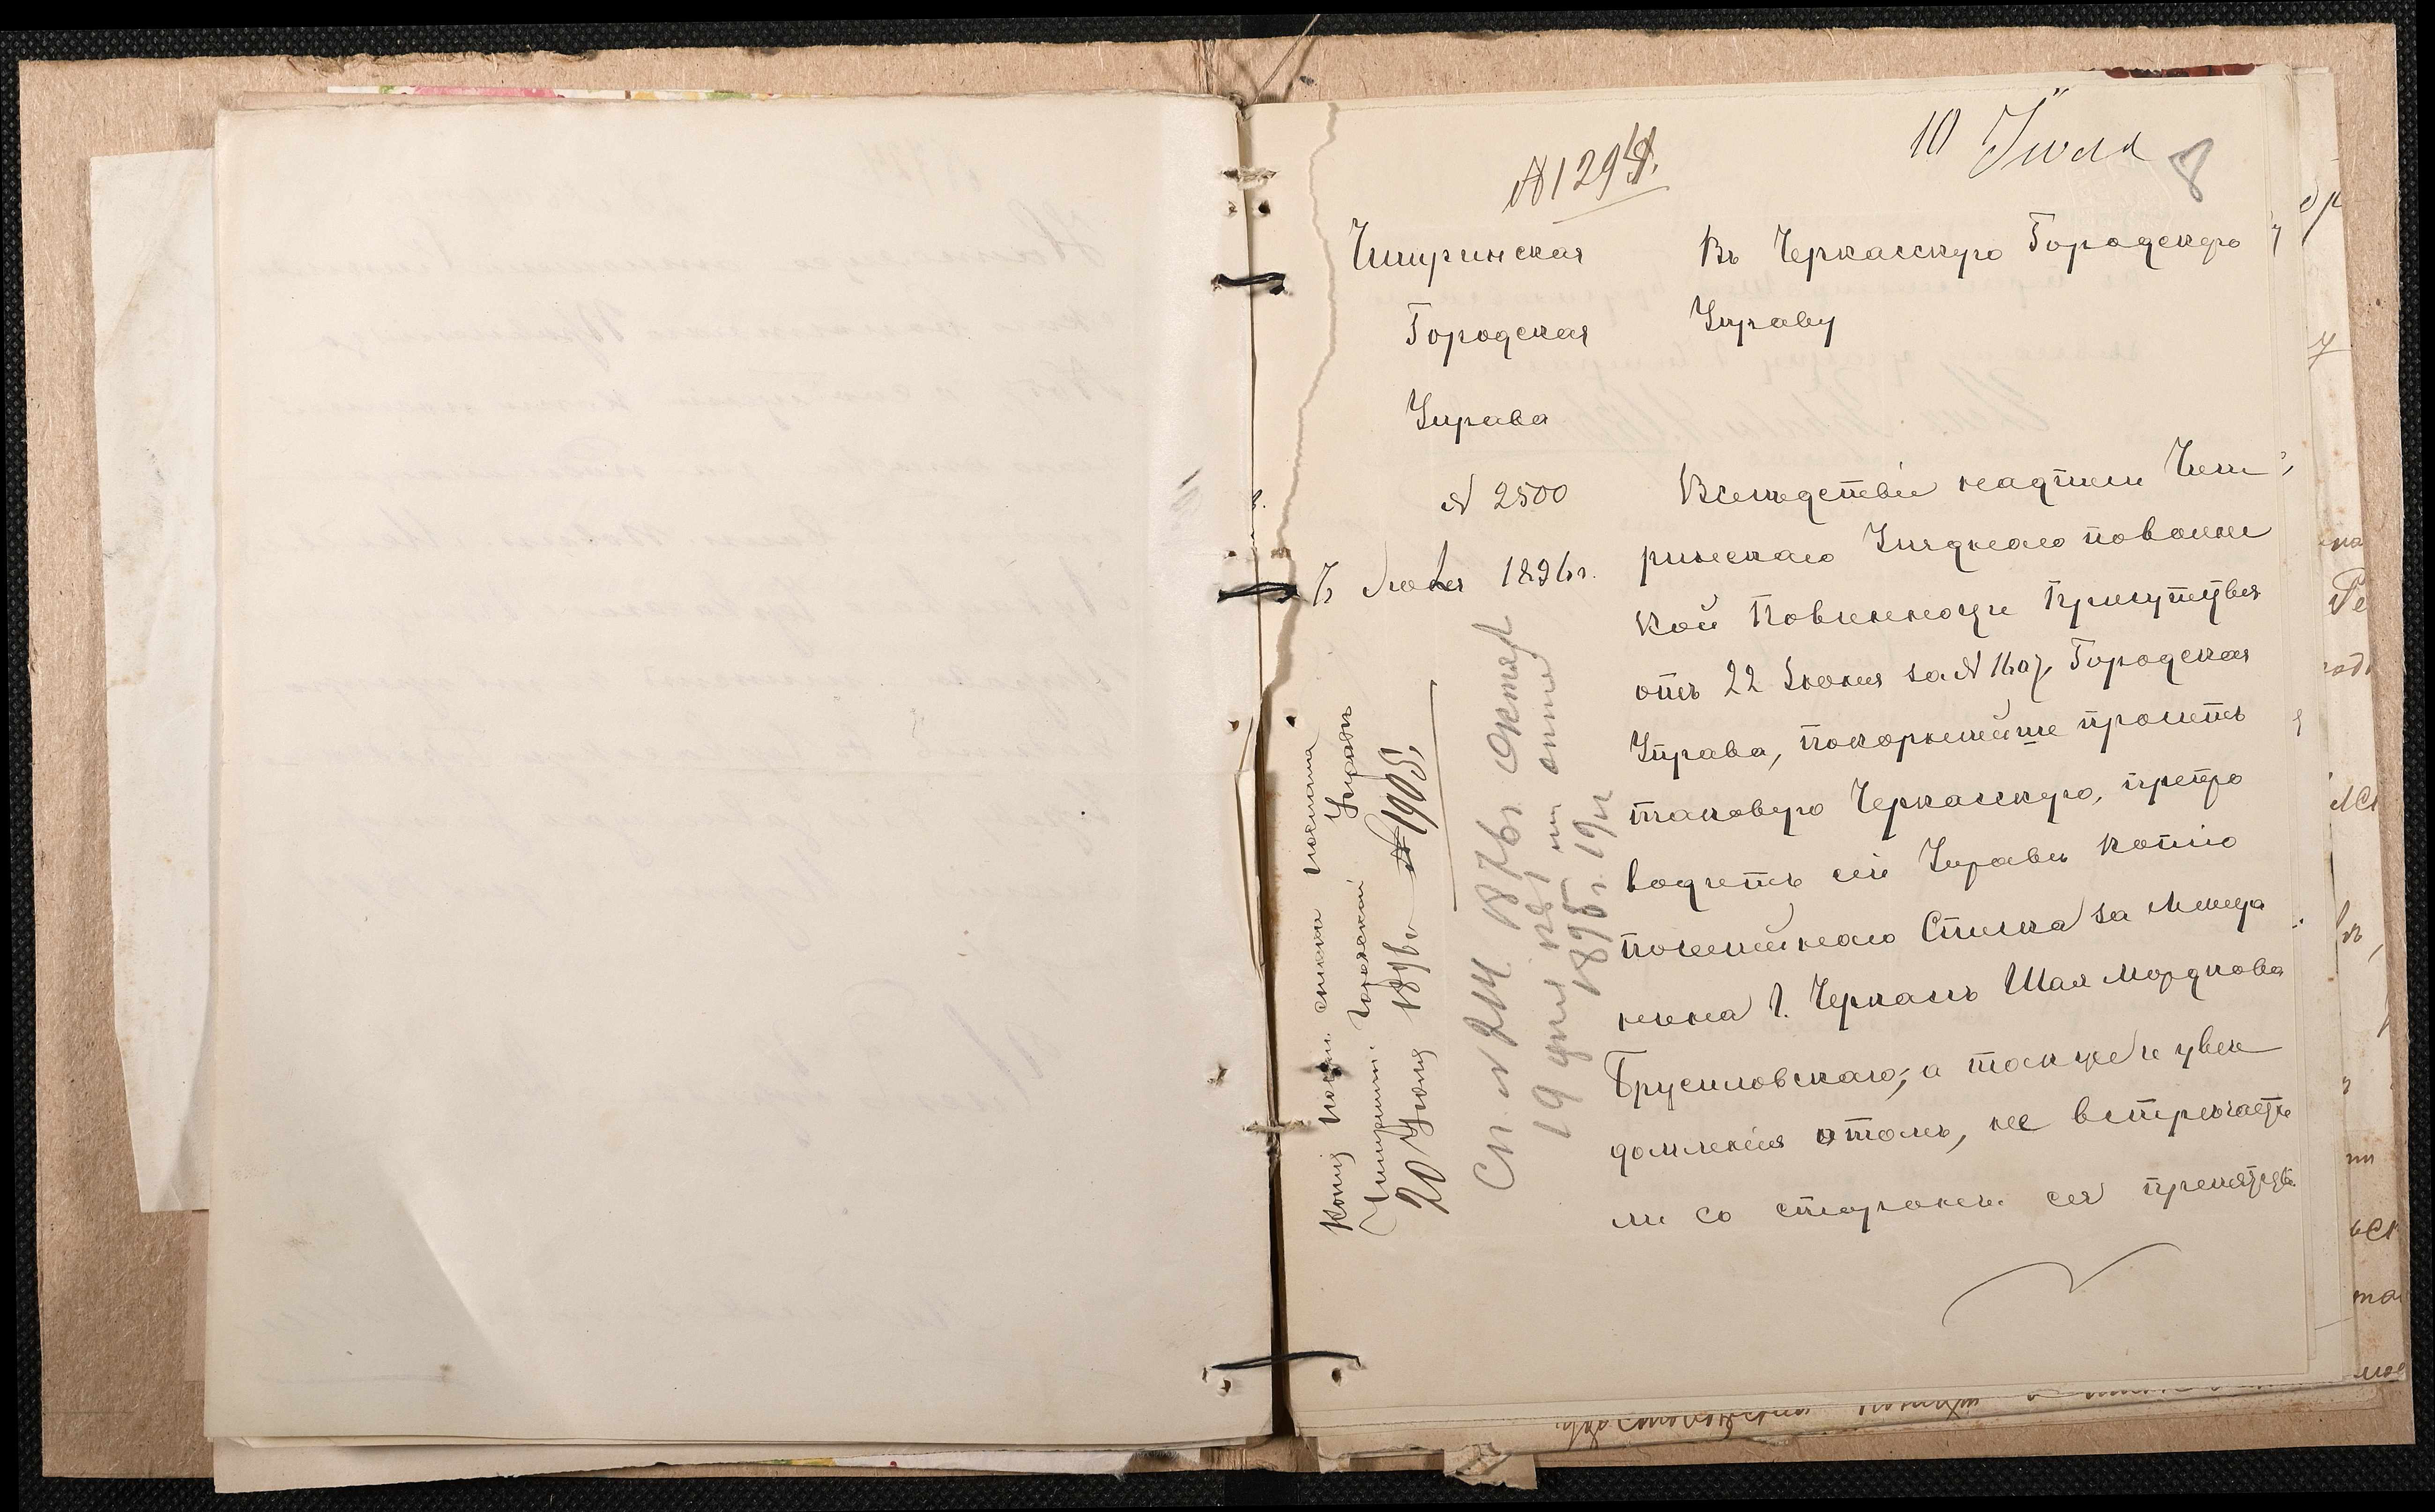 № 1294.
10 Июля
8
Чигиринская
Городская
Управа
№ 2500
7 Июля 1896 г.
Въ Черкасскую Городскую
Управу
Вследствіе надписи Чиги
ринскаго Уезднаго по воинс
кой Повинности Присутствія
отъ 22 Іюня за № 1607 Городская
Управа, покорнейше проситъ
таковую Черкасскую, препро
водить сей Управе копію
посемейнаго Списка за Меща
нина г. Черкасъ Шая Мордкова
Брусиловскаго, а также и уве
домленія о томъ, не встречается
ли со стороны ея препятств
Копія посем. списка послана
Чигирин. Городской Управе
20 Июля 1896 г № 1905.
Сп. № 214 1876 г. Октяб
19 дня
1895 г. 19 л